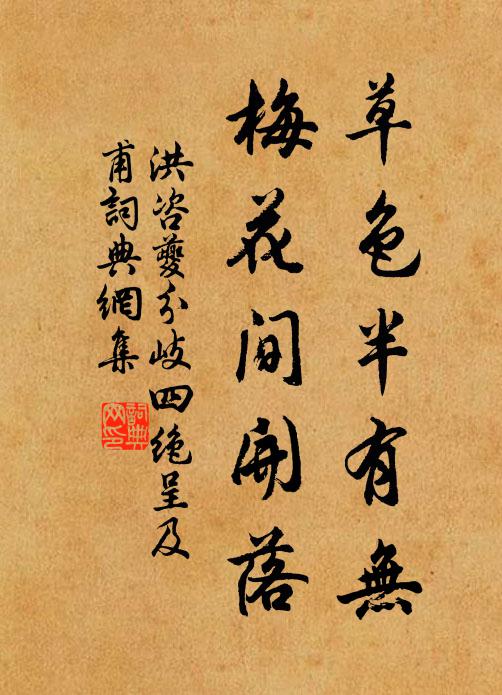 草色半有無
梅花間開落
洪咨夔分岐四絶呈及
甫詞典網集
詞典
网印